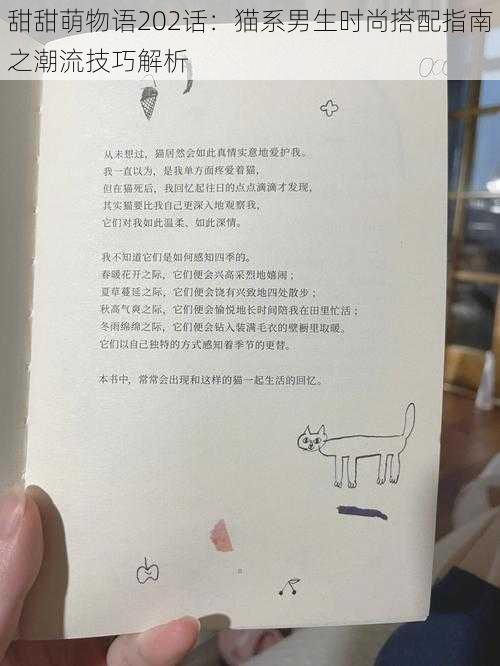 甜甜萌物语202话：猫系男生时尚搭配指南
之潮流技巧解析
从未想过，猫居然会如此真情实意地爱护我。
我一直以为，是我单方面疼爱着猫，
但在猫死后，我回忆起往日的点点滴滴才发现，
其实猫要比我自己更深入地观察我，
它们对我如此温柔、如此深情。
我不知道它们是如何感知四季的。
春暖花开之际，它们便会兴高采烈地嬉闹；
夏草蔓延之际，它们便会饶有兴致地四处散步；
秋高气爽之际，它们便会愉悦地长时间陪我在田里忙活；
冬雨绵绵之际，它们便会钻入装满毛衣的壁橱里取暖。
它们以自己独特的方式感知着季节的更替。
本书中，常常会出现和这样的猫一起生活的回忆。